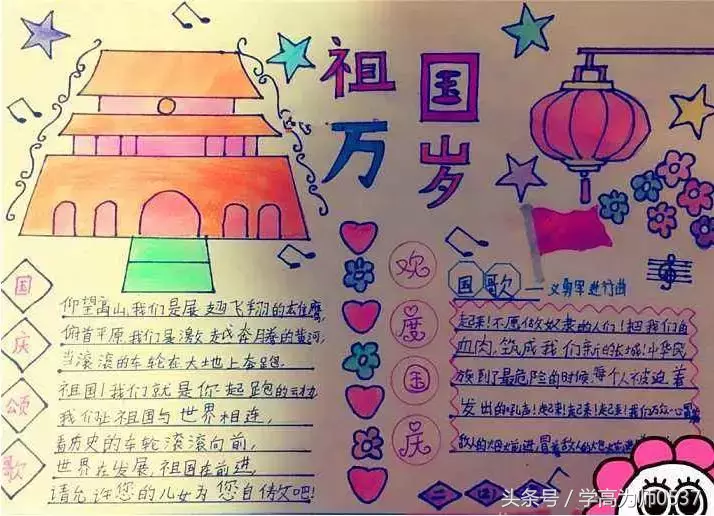 祖国
万岁
国庆颂歌
仰望高山,我们是展翅飞翔的雄鹰,
俯首平原,我们是激越奔腾的黄河,
当滚滚的车轮在大地上奔跑,
祖国!我们就是你起跑的
我们让祖国与世界相连,
看历史的车轮滚滚向前,
世界在发展,祖国在前进,
请允许您的儿女为您自傲吧!
欢度国庆
国歌——义勇军进行曲
起来!不愿做奴隶的人们!把我们的
血肉,筑成我们新的长城!中华民
族到了最危险的时候,每个人被迫着
发出的吼声!起来!起来!起来!我们万众一心
敌人的炮火前进,冒着敌人的炮火前进
二(2)
头条号 / 学高为师0537